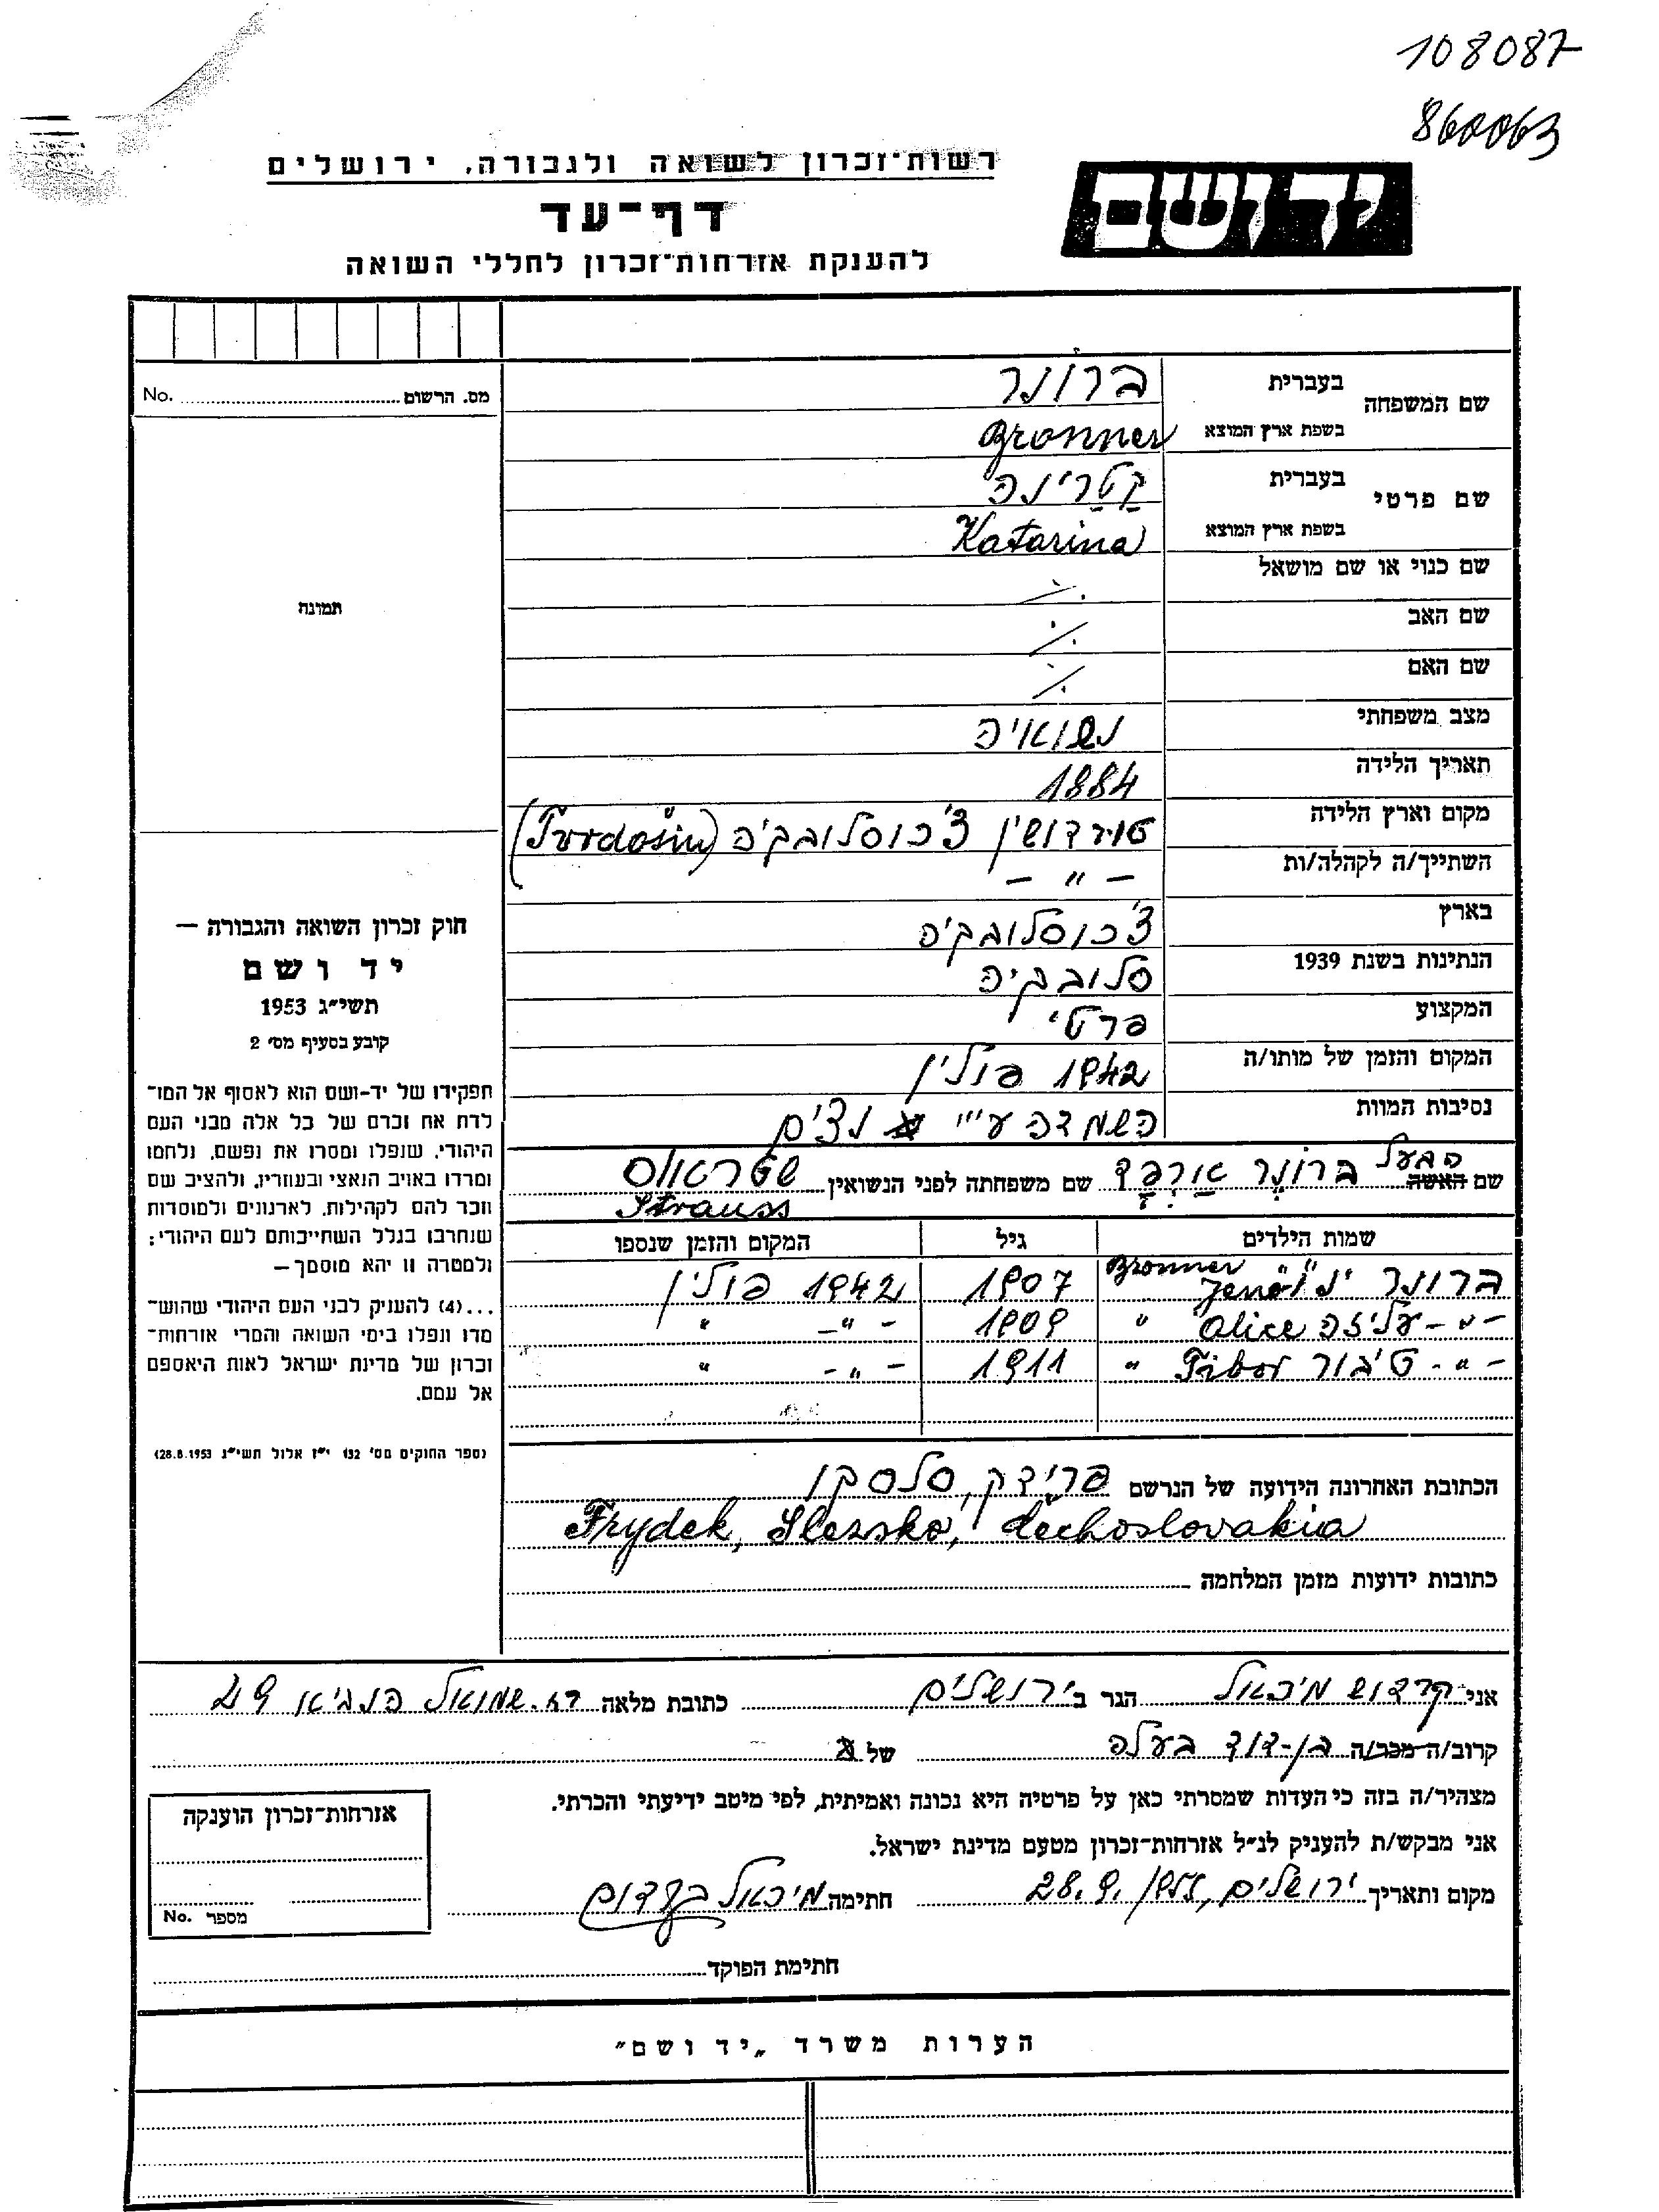 108087
860063
רשות־זכרון לשואה ולגבורה, ירושלים
יד ושם
דף־עד
להענקת אזרחות־זכרון לחללי השואה
מס. הרשום No.
שם המשפחה
בעברית ברונר
בשפת ארץ המוצא Bronner
שם פרטי
בעברית קַטַרינה
בשפת ארץ המוצא Katarina
שם כנוי או שם מושאל ٪
שם האב ٪
שם האם ٪
תמונה
מצב משפחתי נשואיה
תאריך הלידה 1884
מקום וארץ הלידה טורדושין צ'כוסלובקיה (Tvrdošin)
השתייך/ה לקהלה/ות – " –
בארץ צ'כוסלובקיה
הנתינות בשנת 1939 סלובקיה
המקצוע פרטי
המקום והזמן של מותו/ה 1942 פולין
נסיבות המוות השמדה ע"י נצים
הבעל
שם האשה ברונר ארפד שם משפחתה לפני הנשואין שטראוס
Strauss
שמות הילדים גיל המקום והזמן שנספו
ברונר ינו Bronner Jenö 1907 1942 פולין
– " – עליזה Alice " 1909 – " – "
– " – טיבור Tibor " 1911 – " – "
הכתובת האחרונה הידועה של הנרשם פרידק, סלסקו
Frydek, Slezsko, Čechoslovakia
כתובות ידועות מזמן המלחמה
חוק זכרון השואה והגבורה —
יד ושם
תשי״ג 1953
קובע בסעיף מס׳ 2
תפקידו של יד-ושם הוא לאסוף אל המו־
לדת את זכרם של כל אלה מבני העם
היהודי, שנפלו ומסרו את נפשם, נלחמו
ומרדו באויב הנאצי ובעוזריו, ולהציב שם
וזכר להם לקהילות, לארגונים ולמוסדות
שנחרבו בגלל השתייכותם לעם היהודי;
ולמטרה זו יהא מוסמך —
...(4) להעניק לבני העם היהודי שהוש־
מדו ונפלו בימי השואה והמרי אזרחות־
זכרון של מדינת ישראל לאות היאספם
אל עמם.
(ספר החוקים מס׳ 132 י״ז אלול תשי״ג 28.8.1953)
אני קדוש מיכאל הגר בירושלים כתובת מלאה רח. שמואל הנביא 29
קרוב/ה מכר/ה בן-דוד בעלה של
מצהיר/ה בזה כי העדות שמסרתי כאן על פרטיה היא נכונה ואמיתית, לפי מיטב ידיעתי והכרתי.
אני מבקש/ת להעניק לנ״ל אזרחות־זכרון מטעם מדינת ישראל.
מקום ותאריך ירושלים, 28.9.1955 חתימה מיכאל קדוש
אזרחות־זכרון הוענקה
מספר No.
חתימת הפוקד
הערות משרד „יד ושם״